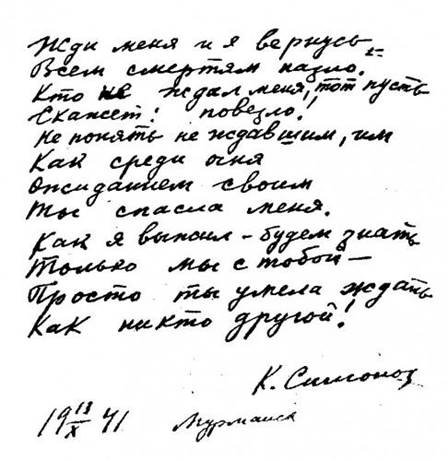 Жди меня и я вернусь
Всем смертям назло.
Кто не ждал меня, тот пусть
Скажет: повезло!
Не понять не ждавшим, им
Как среди огня
Ожиданием своим
Ты спасла меня.
Как я выжил – будем знать
Только мы с тобой –
Просто ты умела ждать
Как никто другой!
К. Симонов
19 13/X 41 Мурманск